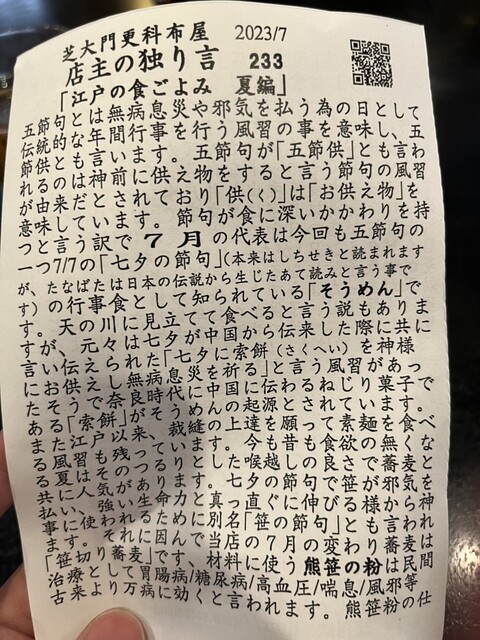 芝大門更科布屋 2023/7
店主の独り言 233
「江戸の食ごよみ 夏編」
五節句とは無病息災や邪気を払う為の日として
伝統的な年間行事を行う風習の事を意味し、五
節供とも言います。五節句が「五節供」とも言わ
れるのは神前に供え物をすると言う節句の風習
が由来だとされており「供(く)」は「お供え物」を
意味しています。節句が食に深いかかわりを持
つと言う訳で7月の代表は今回も五節句の
一つ7/7の「七夕の節句」(本来はしちせきと読まれます
が、たなばたは日本の伝説から生じたあて読みと言う事で
す)の行事食として知られている「そうめん」で
す。天の川に見立てて食べると言う説もありま
すが、元々は七夕が中国から伝来した際に共に
言い伝えられた「七夕に索餅(さくへい)を神様
にお供えし無病息災を祈る」と言う風習があっ
たそうで奈良時代に中国に伝わるねじり菓子で
ある「索餅」がそうめんの起源とされています。
また江戸以来、裁縫の上達を願って素麺を食べ
る風習も残っています。今も昔も食欲の無くな
る夏はそのつるりとした喉越しの良さで蕎麦と
共に人気があります。七夕の節句で笹が邪気を
払い、強い生命力と真っ直ぐに伸びる様から神
事に使われるために別名「笹の節句」とも言われ
ます。それに因んで当店の7月の変わり蕎麦は
「笹切り蕎麦」です、材料に使う熊笹の粉は民間
治療として胃腸病/糖尿病/高血圧/喘息/風邪等
古来より万病に効くと言われます。熊笹粉の仕